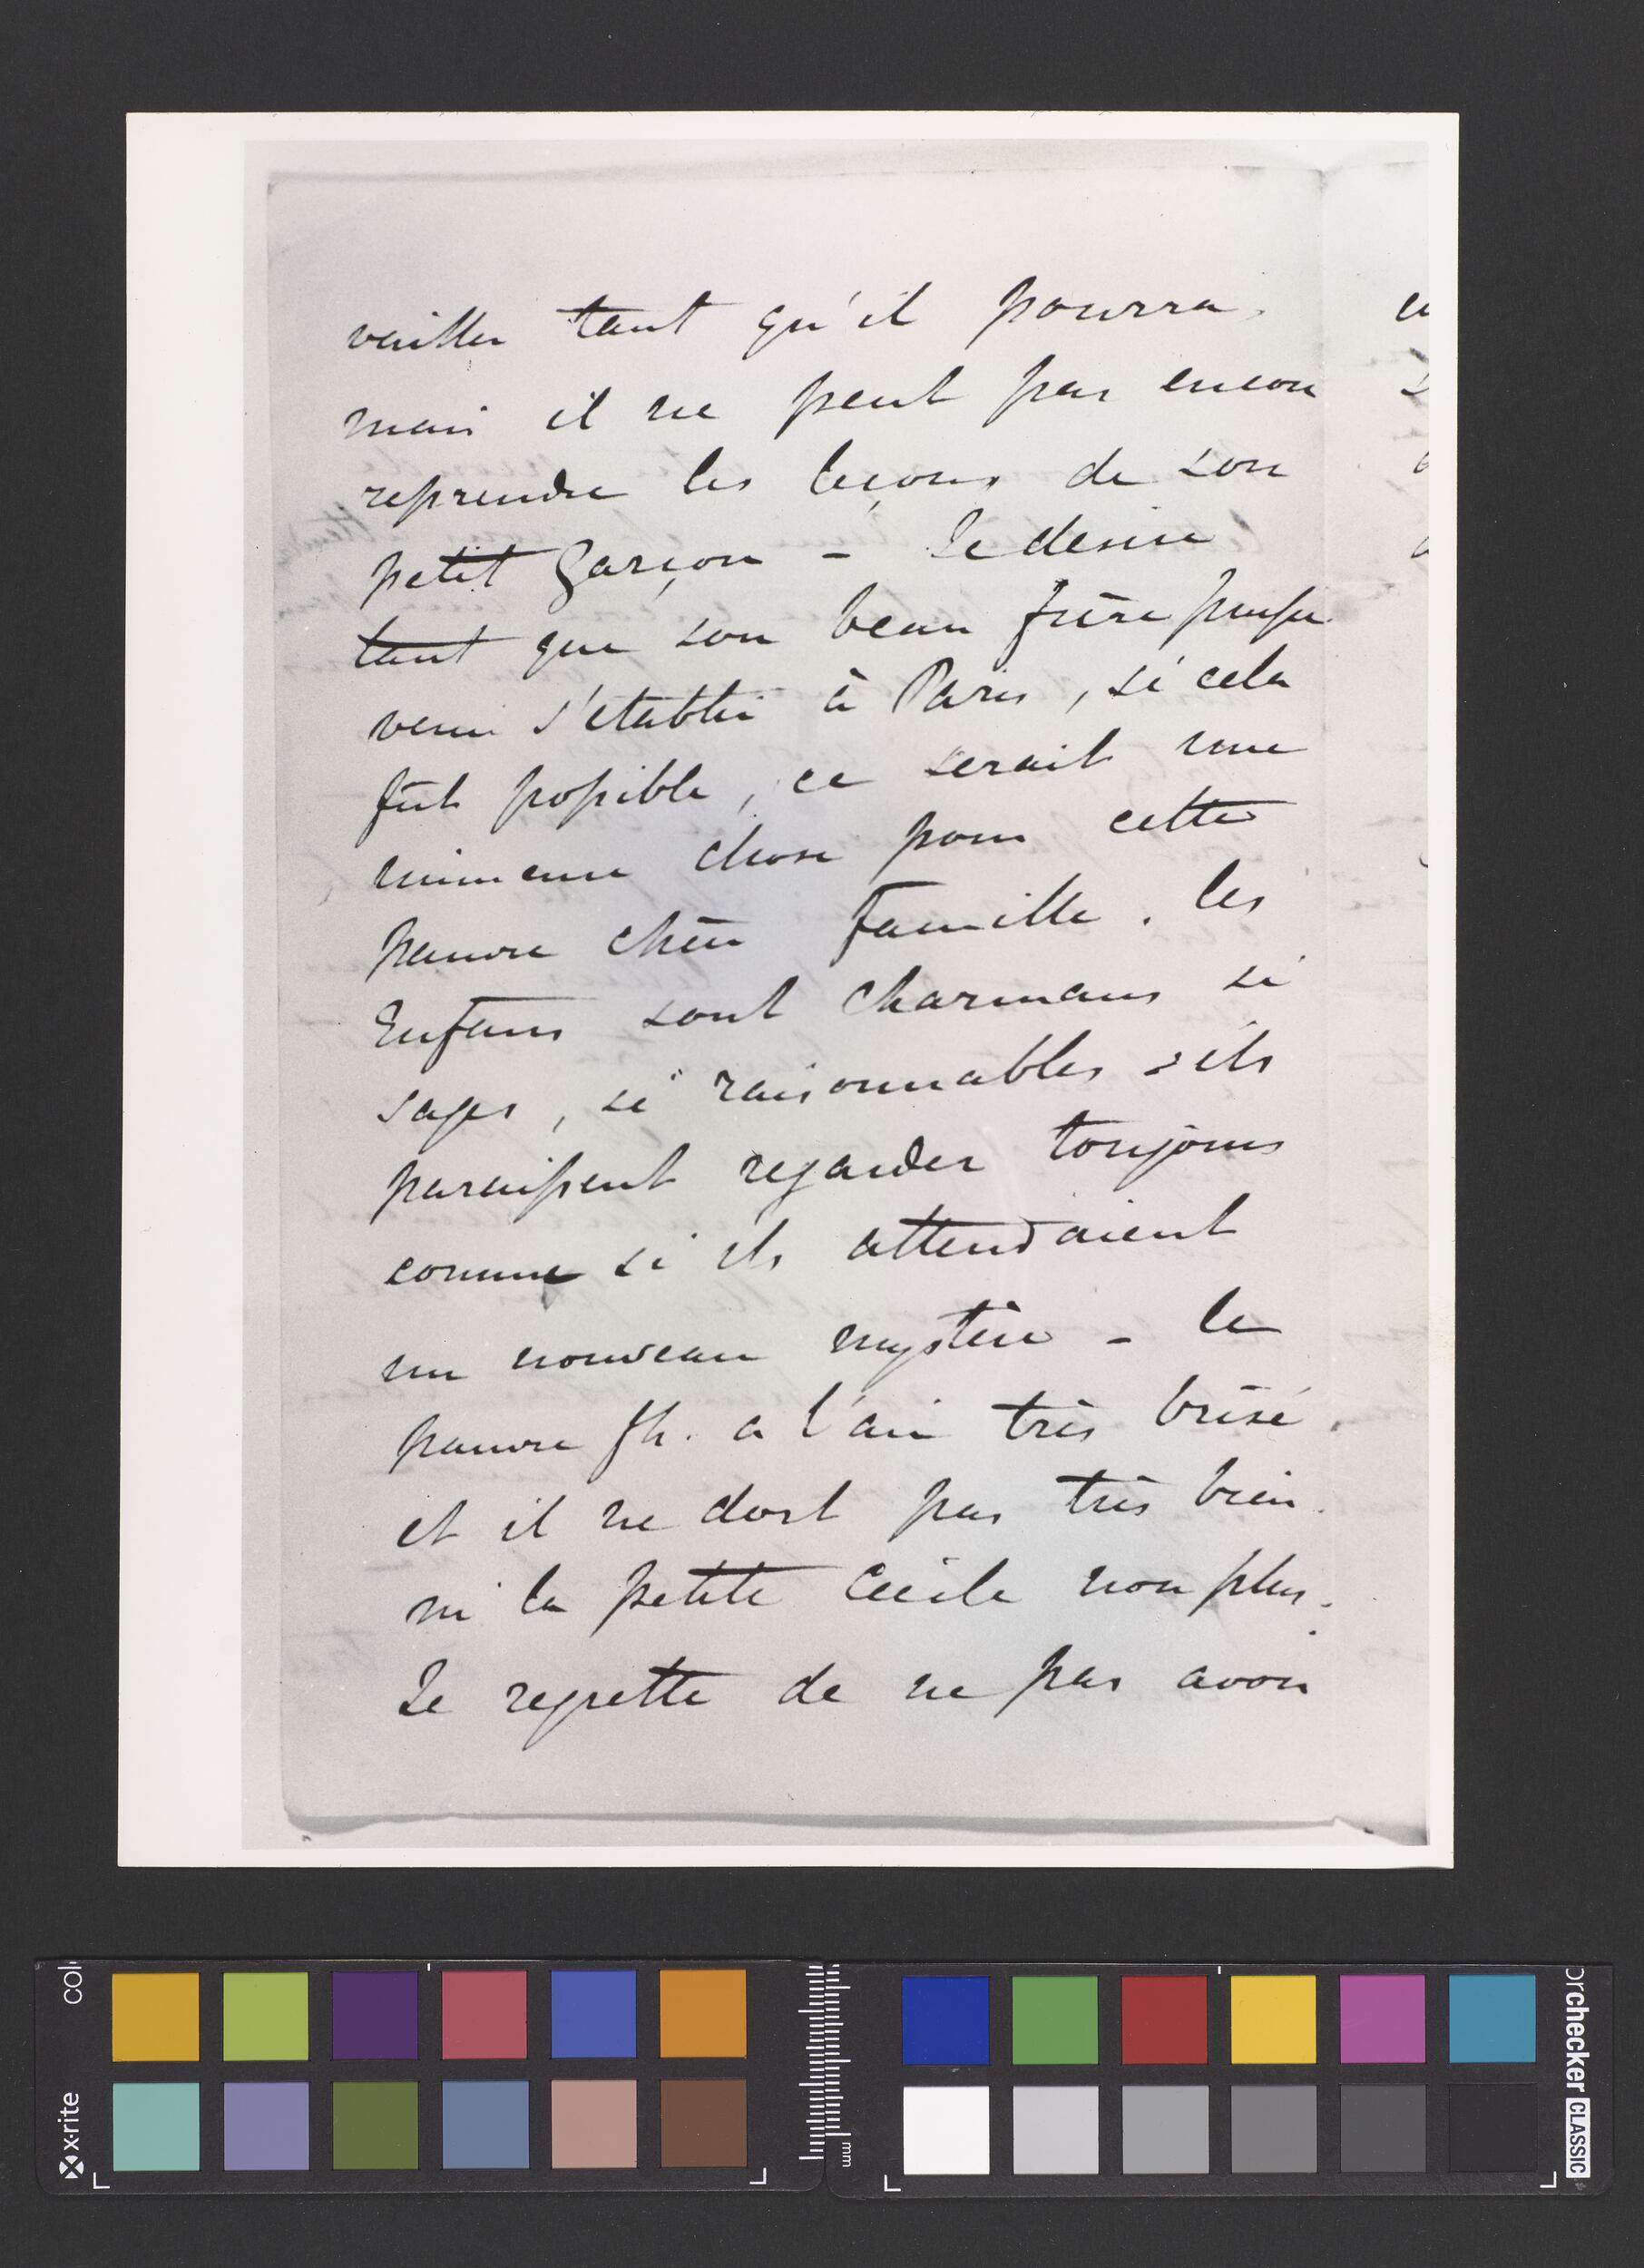 veiller tant qu'il pourra.
mais il ne peut pas encore
reprendre les leçons de son
petit garçon – Je desire
tant que son beau frère puisse
venir s'etablir à Paris, si cela
fût possible, ce serait une
immense chose pour cette
pauvre chère famille. les
Enfans sont charmans si
sages, si raisonnables ils
paraissent regarder toujours
comme si ils attendaient
un nouveau mystère – le
pauvre Th. a l'air très brisé.
et il ne dort pas très bien.
ni la petite Cécile non plus.
Je regrette de ne pas avoir
x-rite
mm
checker CLASSIC